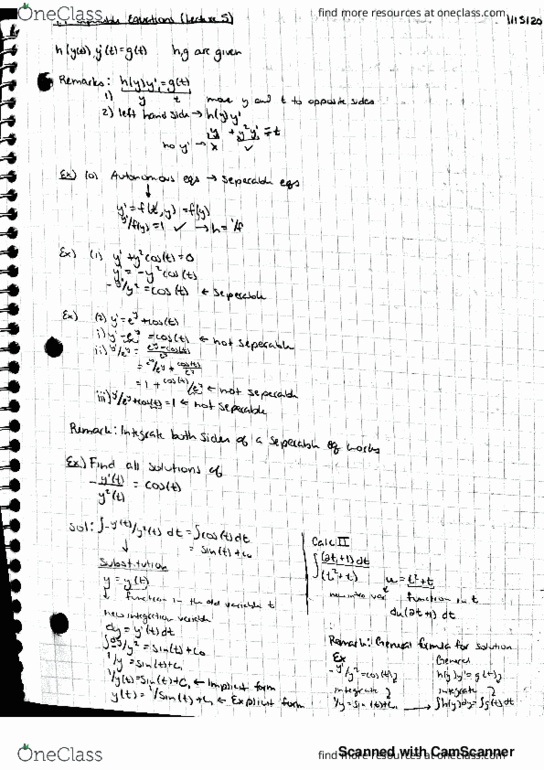 OneClass
find more resources at oneclass.com
Equations (Lecture 5)
1/15/20
h(y(t)) y'(t) = g(t) h, g are given
Remarks: h(y)y' = g(t)
1) y t move y and t to opposite sides
2) left hand side → h(y)y'
no y' →
Ex) (0) Autonomous eqs → seperable eqs
y' = f(t, y) = f(y)
y'/f(y) = 1 ✓ → h = 1/f
Ex) (1) y' + y²cos(t) = 0
y' = -y²cos(t)
-y'/y² = cos(t) ← seperable
Ex) (2) y' = e^y + cos(t)
i) y' - e^y = cos(t) ← not seperable
ii) y'/e^y =
= 1 + cos(t)/e^y ← not seperable
iii) y'/e^y + cos(t) = 1 ← not seperable
Remark: Integrate both sides of a seperable eq works
Ex) Find all solutions of
-y'(t)/y²(t) = cos(t)
sol: ∫-y'(t)/y²(t) dt = ∫cos(t) dt
= sin(t) + c₀
Substitution
y = y(t)
↓ function in the old variable t
new integration variable
dy = y'(t) dt
= sin(t) + c₀
1/y = sin(t) + c₁
1/y(t) = sin(t) + c₁ ← Implicit form
y(t) = 1/sin(t) + c₁ ← Explicit form
Calc II
∫(2t+1) dt
(t² + t) u = t² + t
function in t
du (2t+1) dt
Remark: General formula for solution
Ex General
-y'/y² = cos(t) h(y)y' = g(t)
integrate integrate
1/y = sin(t) + c₁ → ∫h(y)dy = ∫g(t)dt
Scanned with CamScanner
OneClass
find more resources at oneclass.com